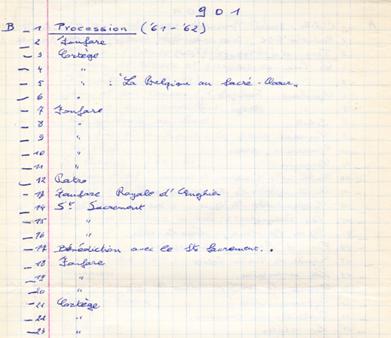 901
B - 1 Procession ('61-'62)
- 2 Fanfare
- 3 Cortège
- 4 "
- 5 " : "La Belgique au Sacré-Coeur"
- 6 "
- 7 Fanfare
- 8 "
- 9 "
- 10 "
- 11 "
- 12 Patro
- 13 Fanfare Royale d'Enghien
- 14 St Sacrement
- 15 "
- 16 "
- 17 Bénédiction avec le St Sacrement..
- 18 Fanfare
- 19 "
- 20 "
- 21 Cortège
- 22 "
- 23 "